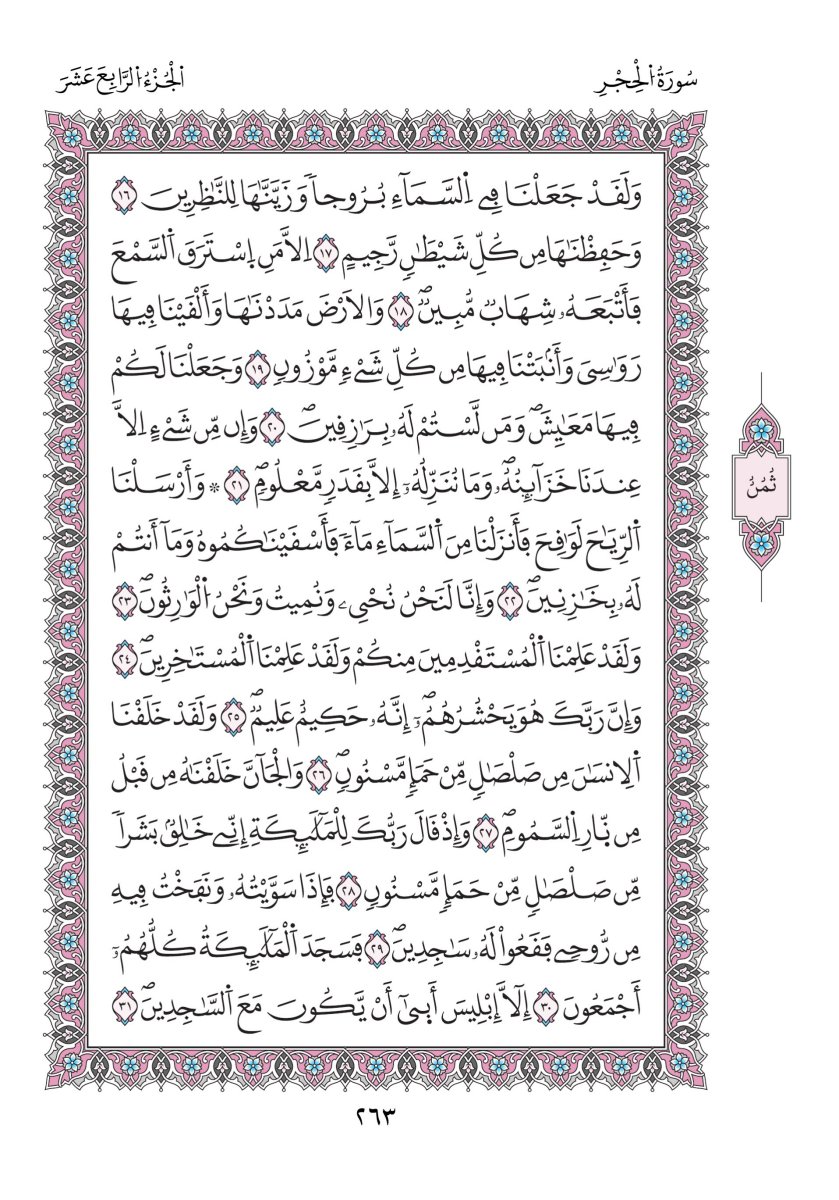 سُورَةُ اُ۬لْحِجْرِ
اَ۬لْجُزْءُ اُ۬لرَّابِعَ عَشَرَ
وَلَقَدْ جَعَلْنَا فِے اِ۬لسَّمَآءِ بُرُوجاٗ وَزَيَّنَّٰهَا لِلنَّٰظِرِينَ ١٦
وَحَفِظْنَٰهَا مِن كُلِّ شَيْطَٰنٖ رَّجِيمٍ ١٧ اِلاَّ مَنِ اِ۪سْتَرَقَ اَ۬لسَّمْعَ
فَأَتْبَعَهُۥ شِهَابٞ مُّبِينٞۖ ١٨ وَالَارْضَ مَدَدْنَٰهَا وَأَلْقَيْنَا فِيهَا
رَوَٰسِيَ وَأَنۢبَتْنَا فِيهَا مِن كُلِّ شَےْءٖ مَّوْزُونٖ ١٩ وَجَعَلْنَا لَكُمْ
فِيهَا مَعَٰيِشَۖ وَمَن لَّسْتُمْ لَهُۥ بِرَٰزِقِينَۖ ٢٠ وَإِن مِّن شَےْءٍ اِلاَّ
عِندَنَا خَزَآئِنُهُۥۖ وَمَا نُنَزِّلُهُۥٓ إِلاَّ بِقَدَرٖ مَّعْلُومٖۖ ٢١ * وَأَرْسَلْنَا
اَ۬لرِّيَٰحَ لَوَٰقِحَ فَأَنزَلْنَا مِنَ اَ۬لسَّمَآءِ مَآءٗ فَأَسْقَيْنَٰكُمُوهُ وَمَآ أَنتُمْ
لَهُۥ بِخَٰزِنِينَۖ ٢٢ وَإِنَّا لَنَحْنُ نُحْيِۦ وَنُمِيتُ وَنَحْنُ اُ۬لْوَٰرِثُونَۖ ٢٣
وَلَقَدْ عَلِمْنَا اَ۬لْمُسْتَقْدِمِينَ مِنكُمْ وَلَقَدْ عَلِمْنَا اَ۬لْمُسْتَٰخِرِينَۖ ٢٤
وَإِنَّ رَبَّكَ هُوَ يَحْشُرُهُمُۥٓۖ إِنَّهُۥ حَكِيمٌ عَلِيمٞۖ ٢٥ وَلَقَدْ خَلَقْنَا
اَ۬لِانسَٰنَ مِن صَلْصَٰلٖ مِّنْ حَمَإٖ مَّسْنُونٖۖ ٢٦ وَالْجَآنَّ خَلَقْنَٰهُ مِن قَبْلُ
مِن نّ۪ارِ اِ۬لسَّمُومِۖ ٢٧ وَإِذْ قَالَ رَبُّكَ لِلْمَلَٰٓئِكَةِ إِنِّے خَٰلِقُۢ بَشَراٗ
مِّن صَلْصَٰلٖ مِّنْ حَمَإٖ مَّسْنُونٖ ٢٨ فَإِذَا سَوَّيْتُهُۥ وَنَفَخْتُ فِيهِ
مِن رُّوحِے فَقَعُواْ لَهُۥ سَٰجِدِينَۖ ٢٩ فَسَجَدَ اَ۬لْمَلَٰٓئِكَةُ كُلُّهُمُۥٓ
أَجْمَعُونَ ٣٠ إِلَّآ إِبْلِيسَ أَب۪يٰٓ أَنْ يَّكُونَ مَعَ اَ۬لسَّٰجِدِينَۖ ٣١
ثُمُنُ
٢٦٣